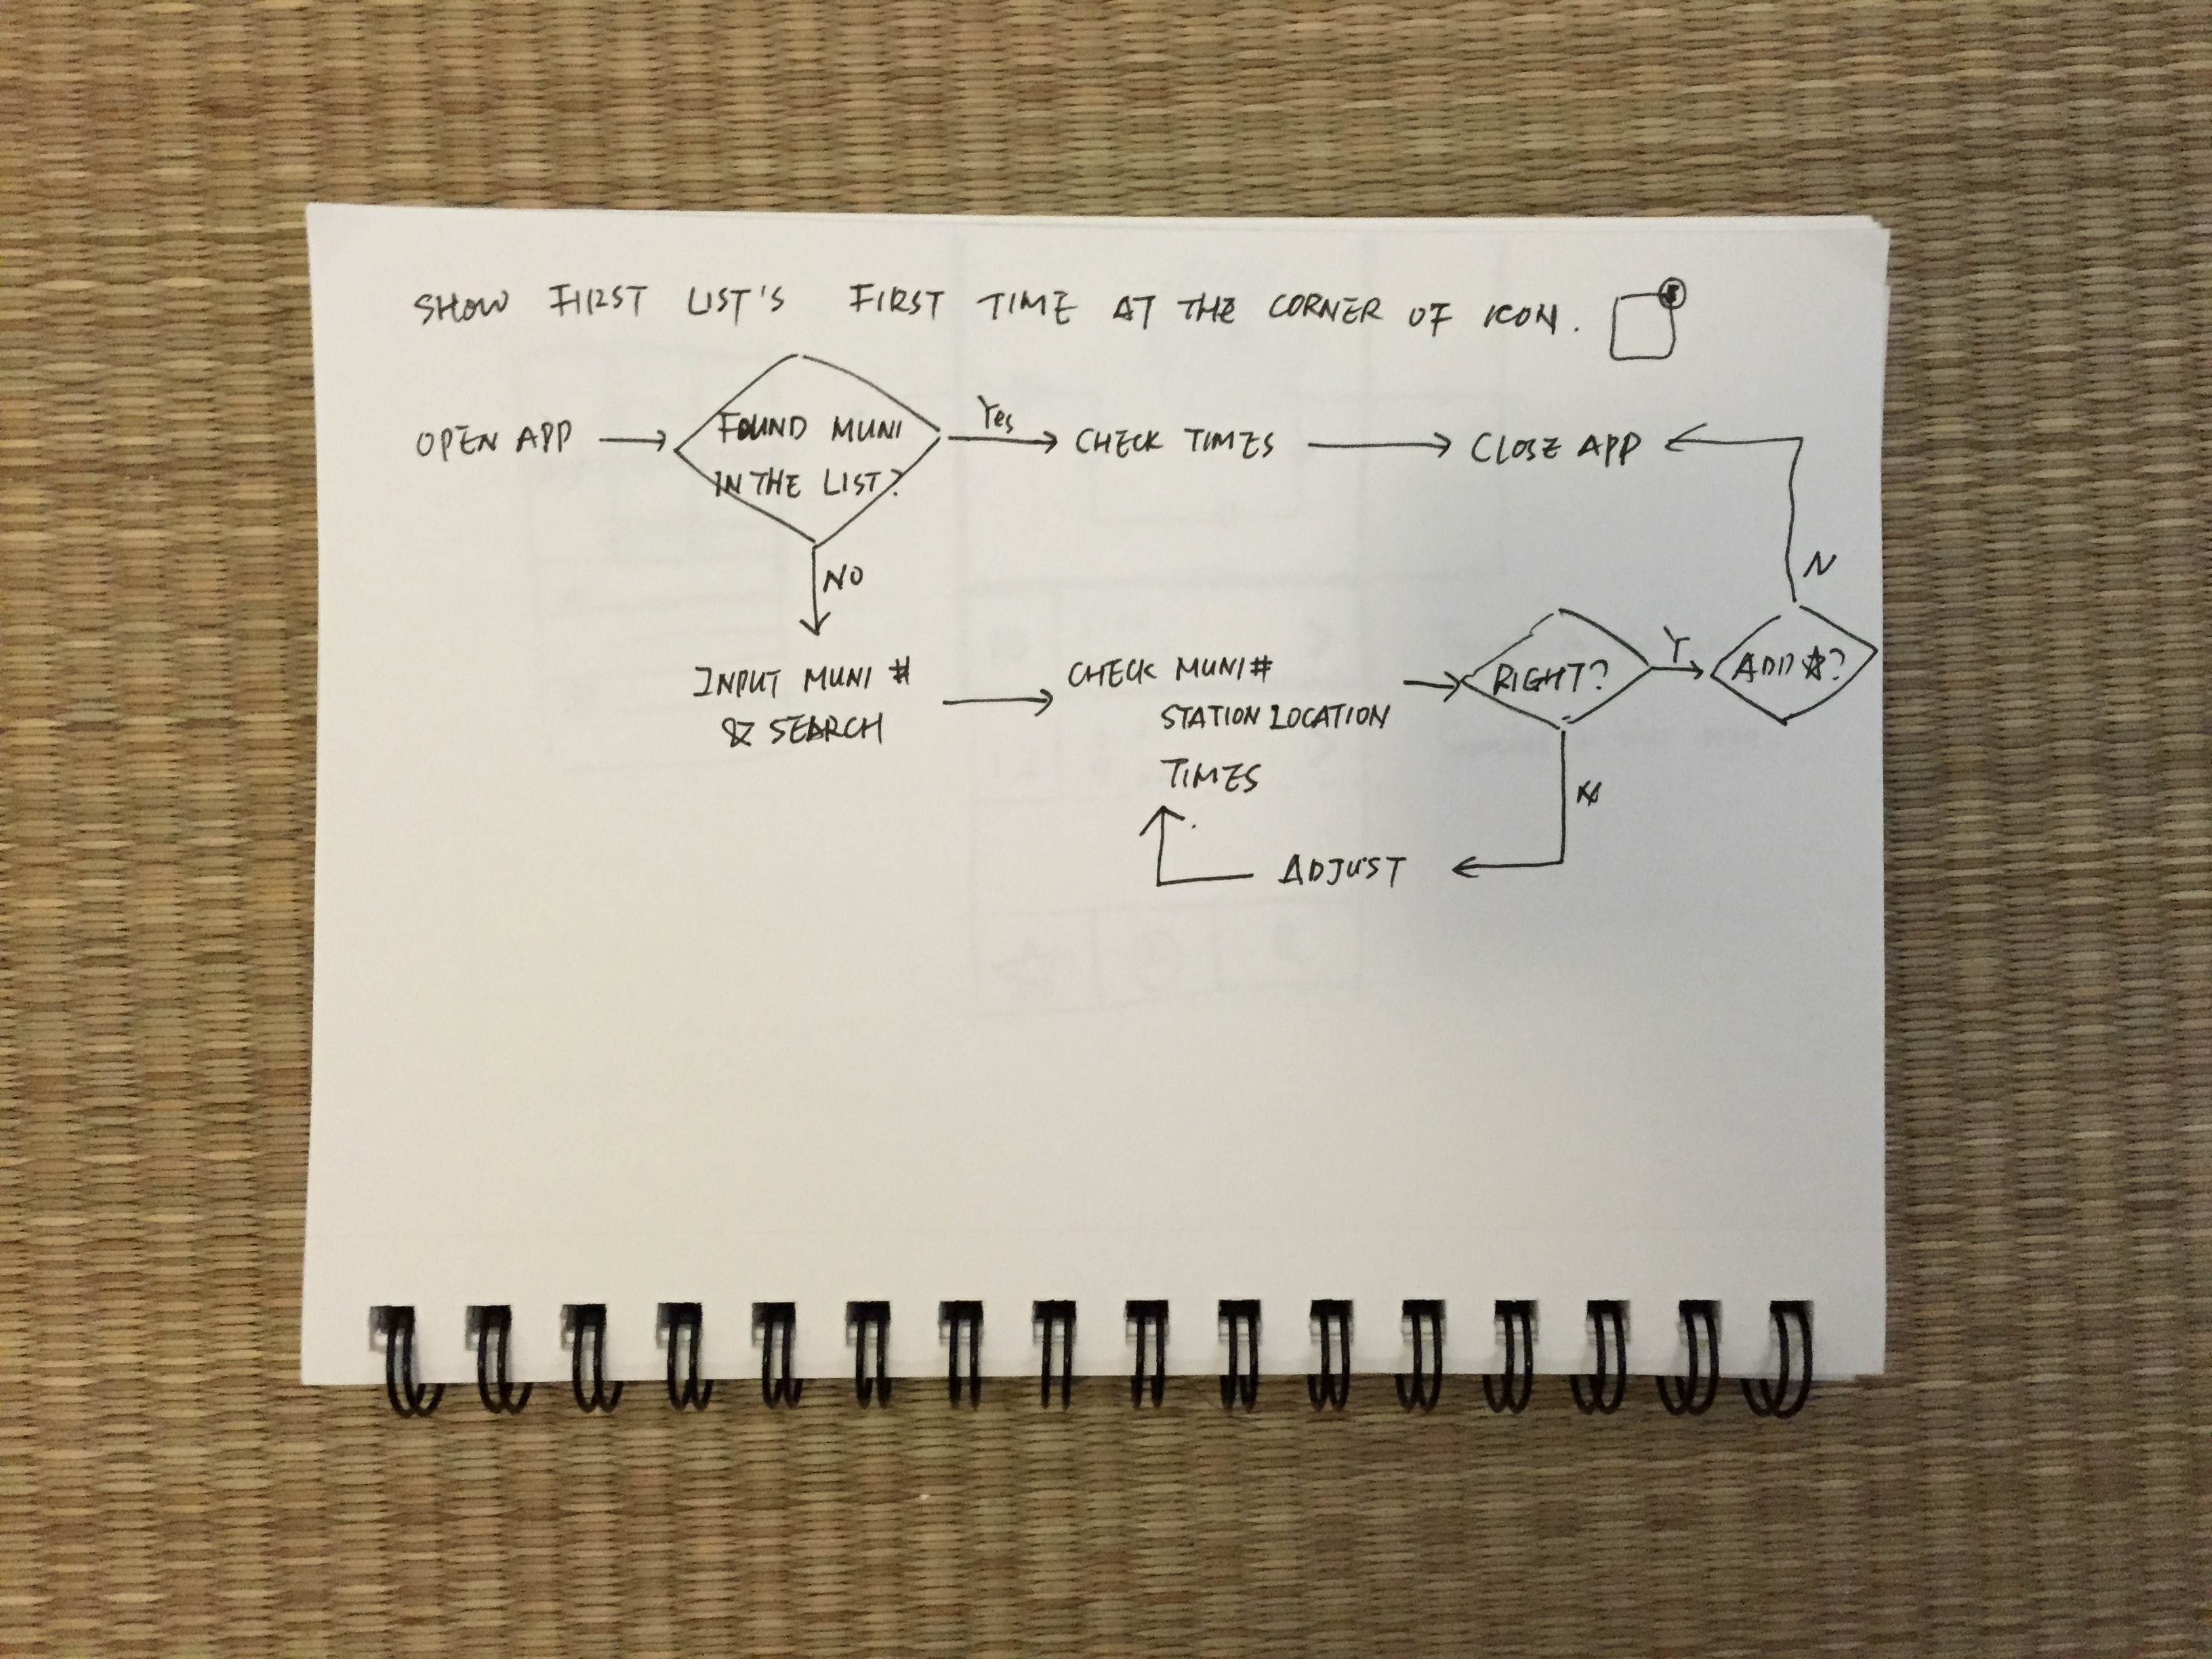 SHOW FIRST LIST'S FIRST TIME AT THE CORNER OF ICON.
OPEN APP
FOUND MUNI
IN THE LIST?
Yes
CHECK TIMES
CLOSE APP
NO
N
INPUT MUNI #
& SEARCH
CHECK MUNI#
STATION LOCATION
TIMES
RIGHT?
Y
ADD ☆?
N
ADJUST